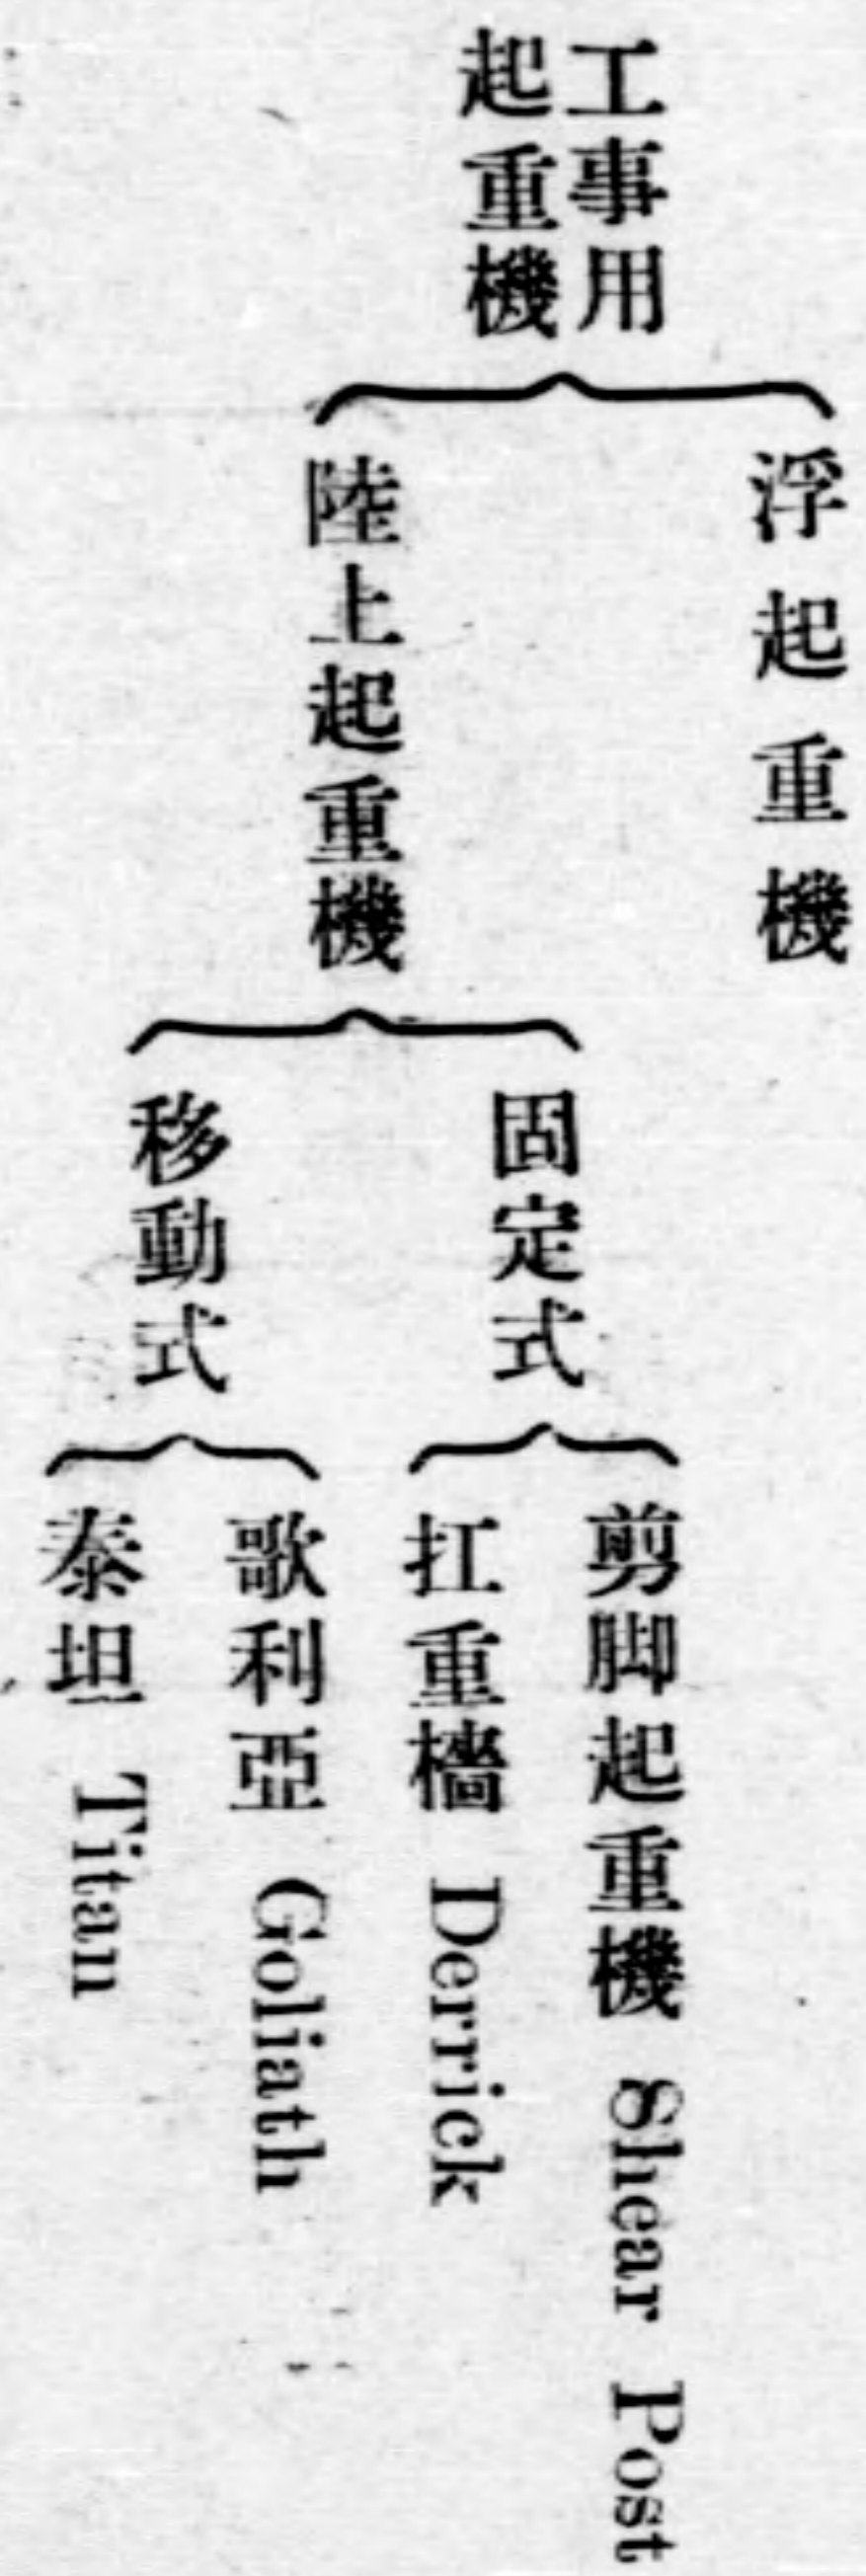 工事用
起重機
浮起重機
陸上起重機
固定式
剪脚起重機 Shear Post
扛重檣 Derrick
移動式
歌利亞 Goliath
泰坦 Titan